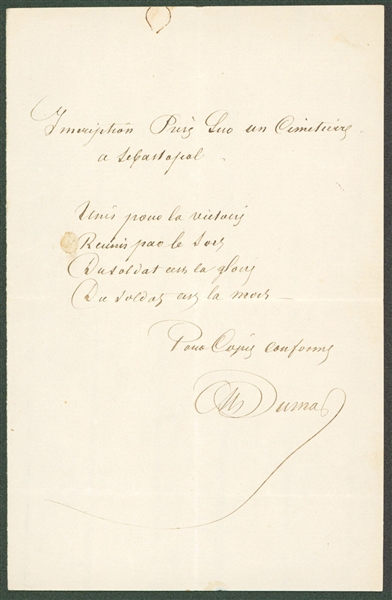 Inscription Prise Sur un Cimetière
a Sebastopol
Unis pour la victoire
Réunis par le Sort
Du soldat c'est la gloire
Du soldat c'est la mort
Pour Copie conforme
Dumas